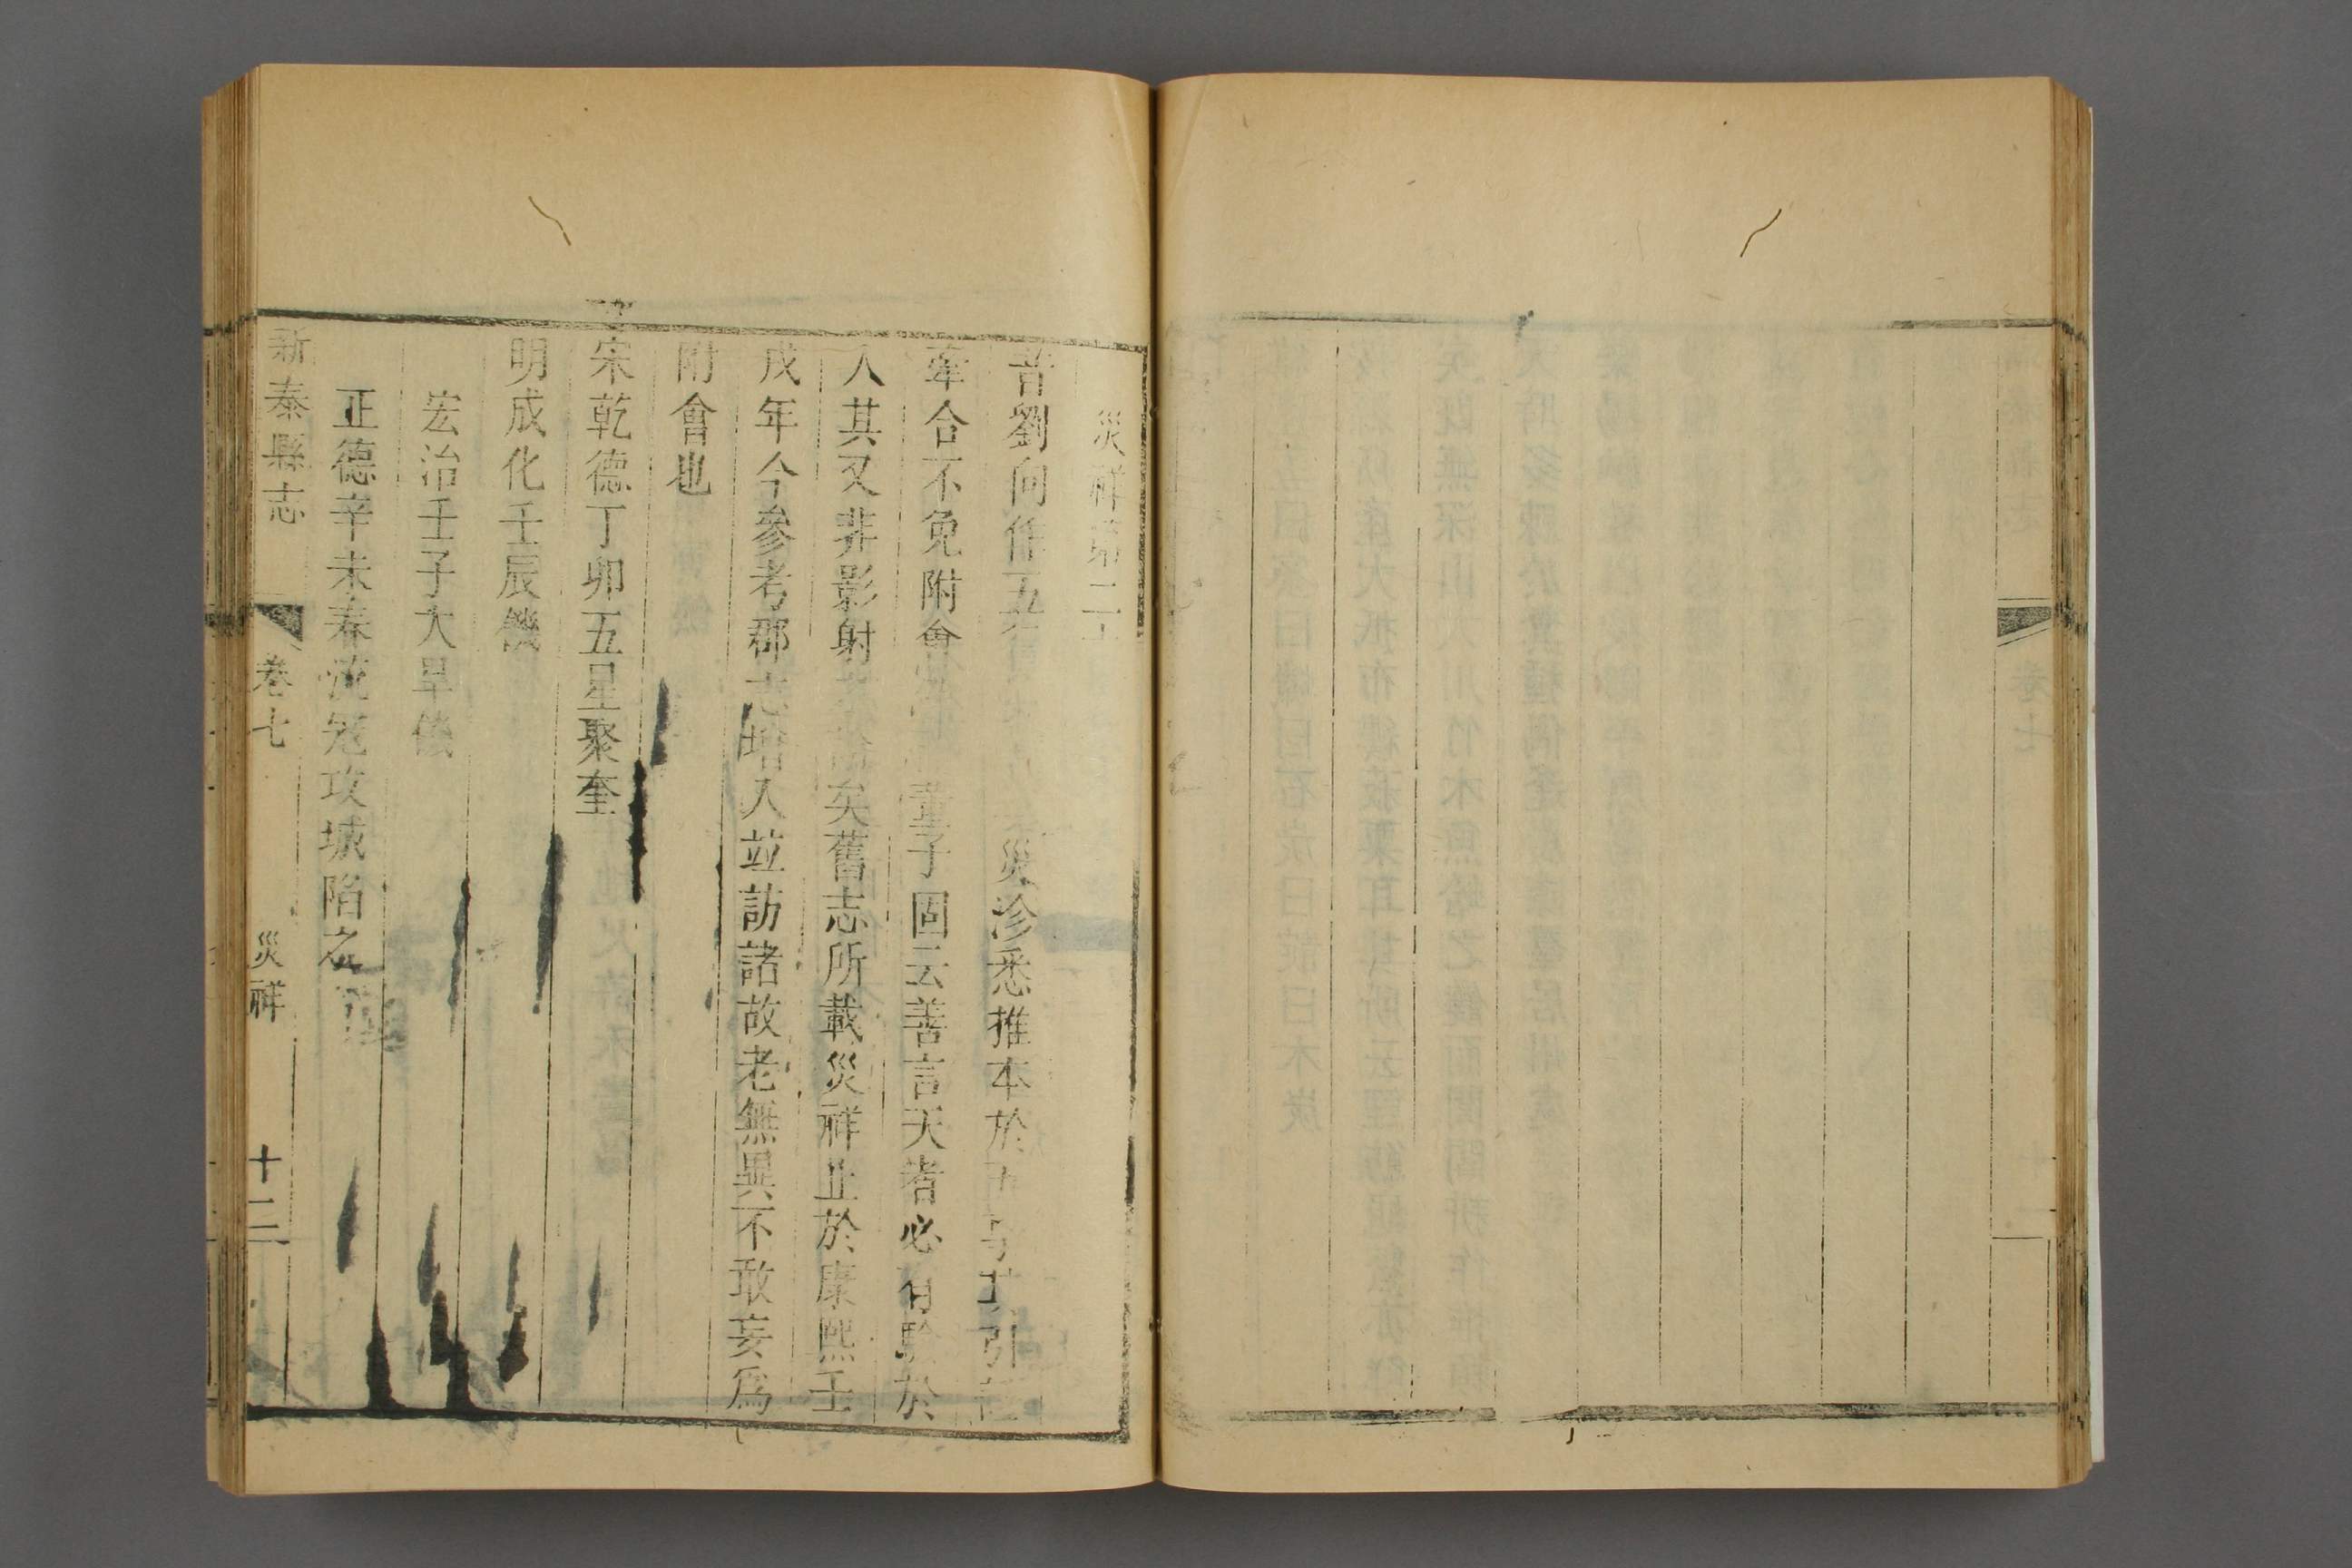 卷七
十一
災祥第二十
昔劉向作五行 災沴悉推本於五 其引
牽合不免附會 董子固云善言天者必有驗於
人其又非影射 矣舊志所載災祥止於康熙壬
戌年今參考郡志增入並訪諸故老無異不敢妄爲
附會也
宋乾德丁卯五星聚奎
明成化壬辰饑
宏治壬子大旱饑
正德辛未春流寇攻城陷之
新泰縣志 卷七 災祥 十二